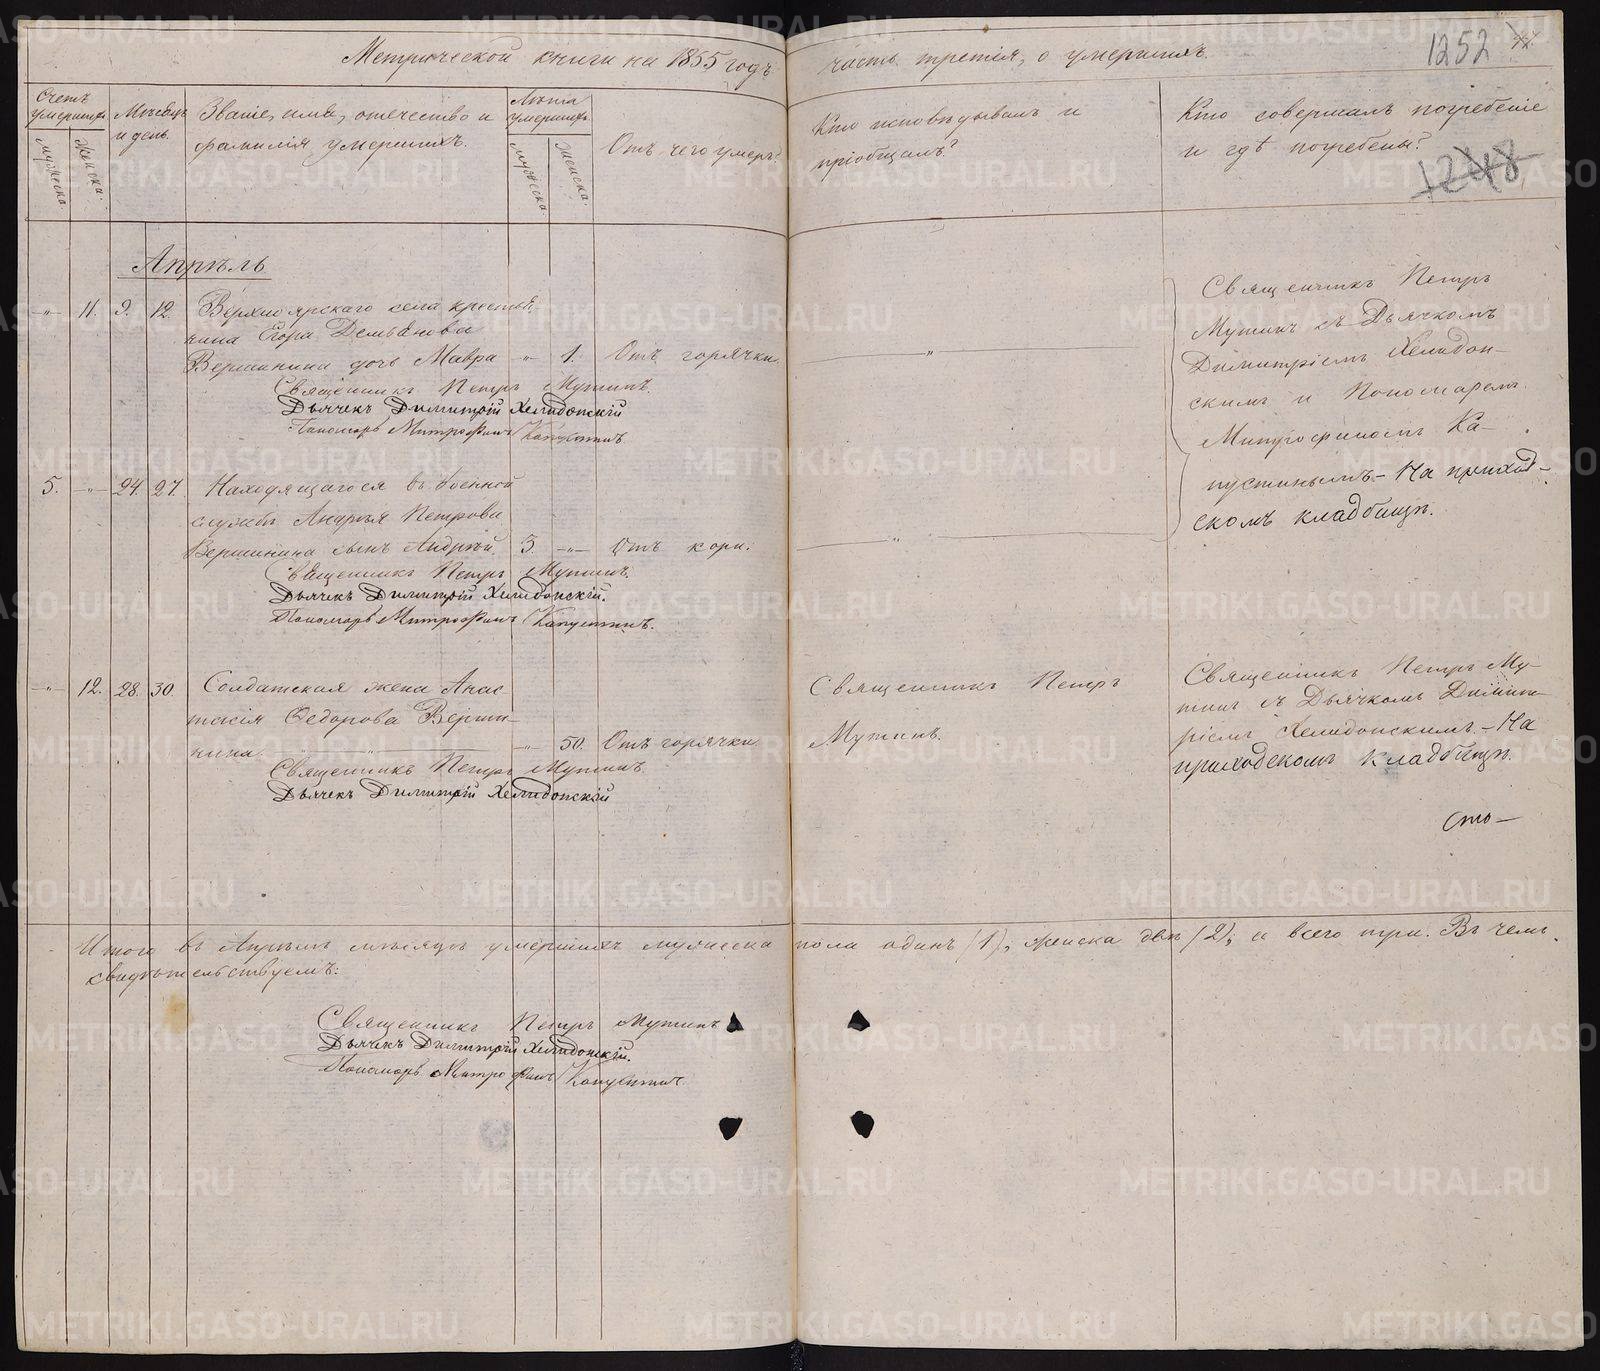 Метрической книги на 1855 годъ часть третія, о умершихъ.
1252
Счетъ умершихъ.
Мужеска.
Женска.
Мѣсяцъ и день.
Званіе, имя, отечество и
фамилія умершихъ.
Лѣта умершихъ.
Мужеска
Женска.
Отъ чего умеръ?
Кто исповѣдывалъ и
пріобщалъ?
Кто совершалъ погребеніе
и гдѣ погребены?
1248
Апрѣль
-"- 11. 9. 12. Верхноярскаго села крестья-
нина Егора Демьянова
Вершинина дочь Мавра -"- 1. Отъ горячки.
Священникъ Петръ Мутинъ.
Дьячекъ Димитрій Хелидонскій
Пономарь Митрофанъ Капустинъ
"
Священникъ Петръ
Мутинъ съ Дьячкомъ
Димитріемъ Хелидон-
скимъ и Пономаремъ
Митрофаномъ Ка-
пустинымъ - На приход-
скомъ кладбищѣ.
5. -"- 24. 27. Находящагося въ военной
службѣ Андрея Петрова
Вершинина сынъ Андрей. 3. -"- Отъ кори.
Священникъ Петръ Мутинъ.
Дьячекъ Димитрій Хелидонскій.
Пономарь Митрофанъ Капустинъ.
"
-"- 12. 28. 30. Солдатская жена Анас-
тасія Федорова Верши-
нина. -"- 50. Отъ горячки
Священникъ Петръ Мутинъ.
Дьячекъ Димитрій Хелидонскій
Священникъ Петръ
Мутинъ.
Священникъ Петръ Му-
тинъ съ Дьячкомъ Димит-
ріемъ Хелидонскимъ. - На
приходскомъ кладбищѣ.
Сто-
Итого въ Апрѣлѣ мѣсяцѣ умершихъ мужеска пола одинъ (1), женска двѣ (2); а всего три. Въ чемъ
свидѣтельствуемъ:
Священникъ Петръ Мутинъ
Дьячекъ Димитрій Хелидонскій.
Пономарь Митрофанъ Капустинъ.
METRIKI.GASO-URAL.RU